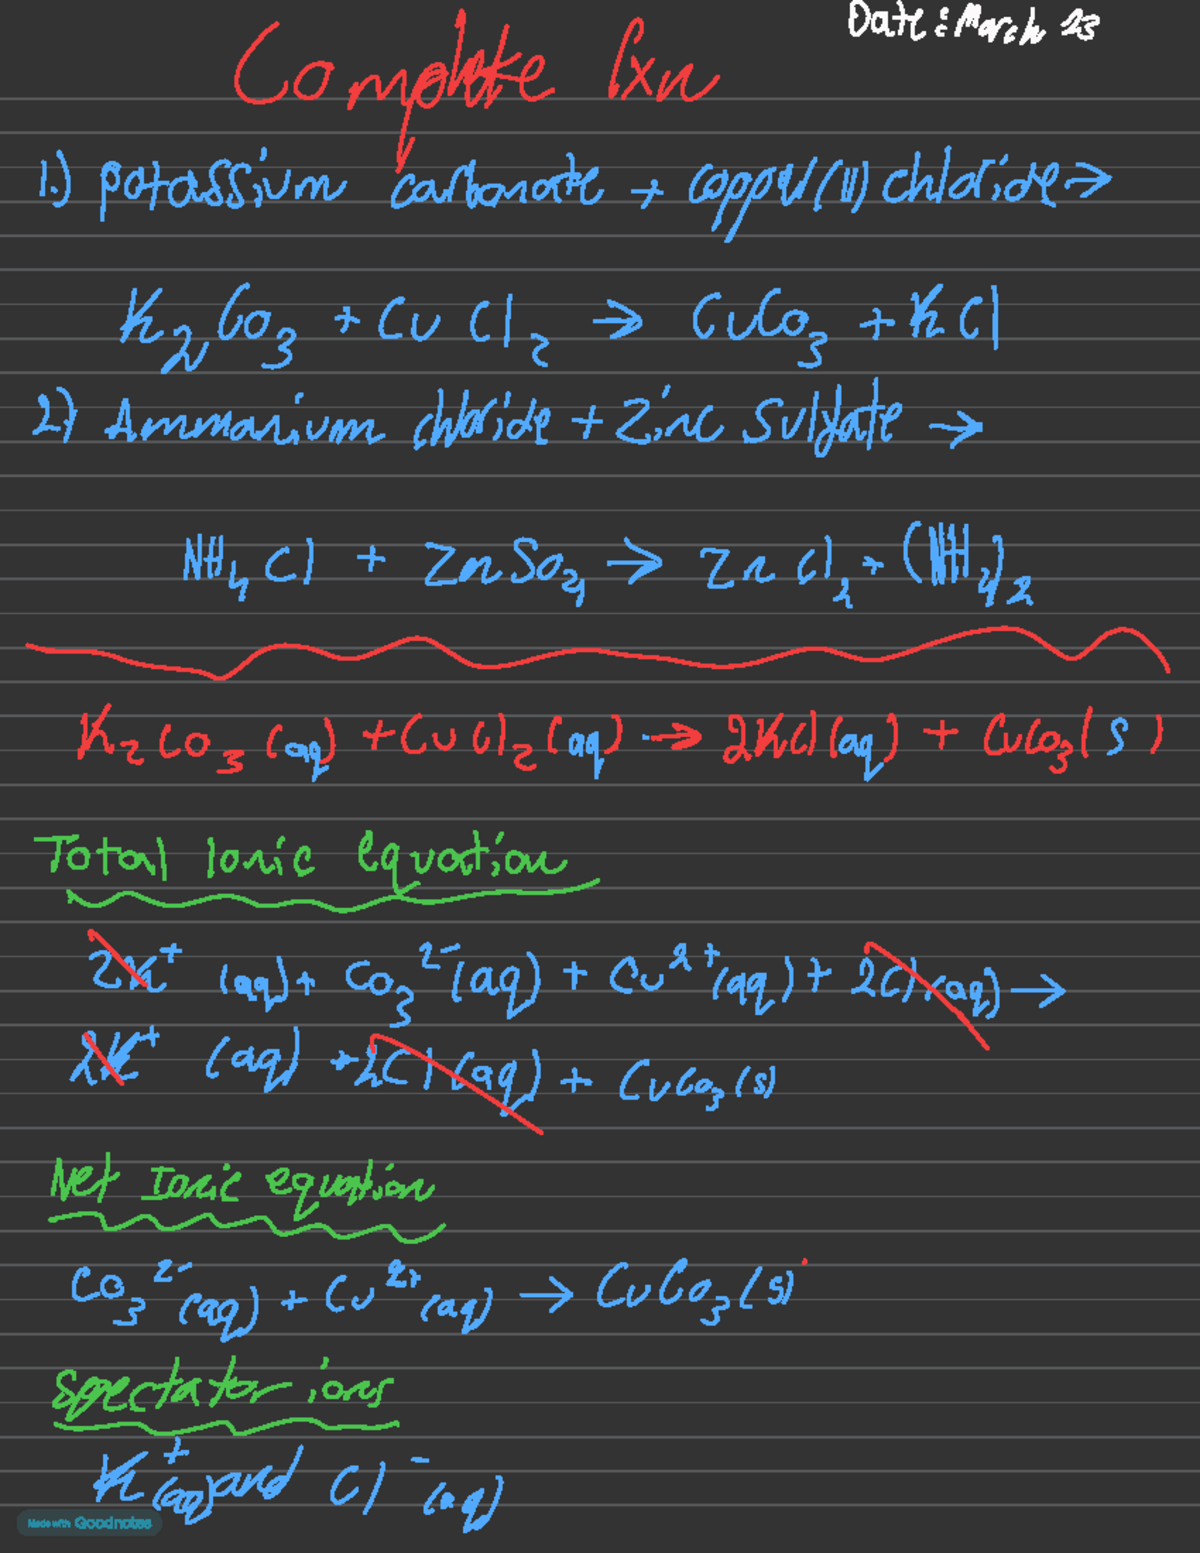 Date: March 23
Complete rxn
1.) potassium carbonate + copper(II) chloride →
K₂CO₃ + CuCl₂ → CuCO₃ + KCl
2.) Ammonium chloride + Zinc Sulfate →
NH₄Cl + ZnSO₄ → ZnCl₂ + (NH₄)₂
K₂CO₃(aq) + CuCl₂(aq) → 2KCl(aq) + CuCO₃(s)
Total Ionic equation
2K⁺(aq) + CO₃²⁻(aq) + Cu²⁺(aq) + 2Cl(aq) →
2K⁺(aq) + 2Cl(aq) + CuCO₃(s)
Net Ionic equation
CO₃²⁻(aq) + Cu²⁺(aq) → CuCO₃(s)
Spectator ions
K⁺(aq) and Cl⁻(aq)
Made with Goodnotes